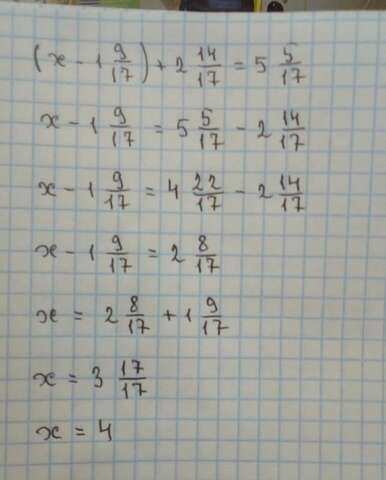 (x - 1 9/17) + 2 14/17 = 5 5/17
x - 1 9/17 = 5 5/17 - 2 14/17
x - 1 9/17 = 4 22/17 - 2 14/17
x - 1 9/17 = 2 8/17
x = 2 8/17 + 1 9/17
x = 3 17/17
x = 4